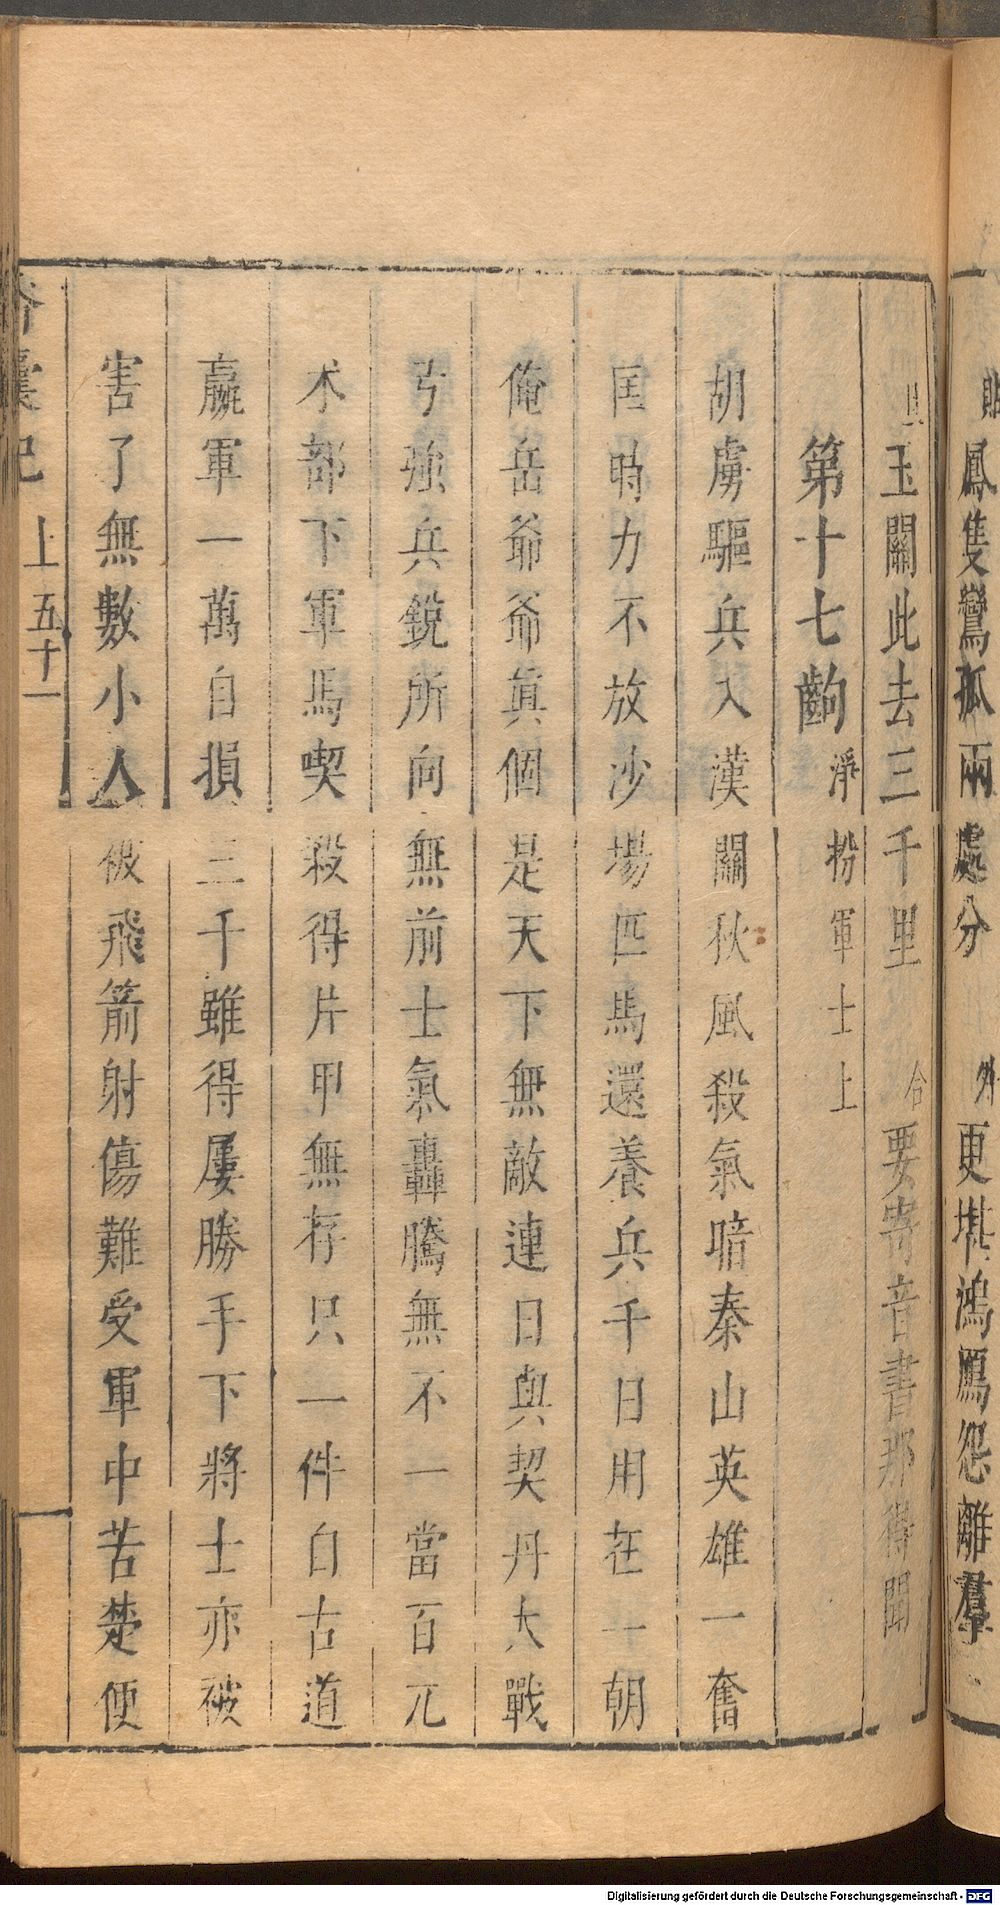 貼 鳳隻鸞孤兩處分 外 更堪鴻鴈怨離羣
旦 玉關此去三千里 合 要寄音書那得聞
第十七齣 淨扮軍士上
胡虜驅兵入漢關秋風殺氣喑秦山英雄一奮
囯時力不放沙場匹馬還養兵千日用在一朝
俺岳爺爺眞個是天下無敵連日與契丹大戰
弓强兵銳所向無前士氣轟騰無不一當百兀
术部下軍馬喫殺得片甲無存只一件自古道
贏軍一萬自損三千雖得屢勝手下將士亦被
害了無數小人被飛箭射傷難受軍中苦楚便
香囊記 上 五十一
Digitalisierung gefördert durch die Deutsche Forschungsgemeinschaft - DFG